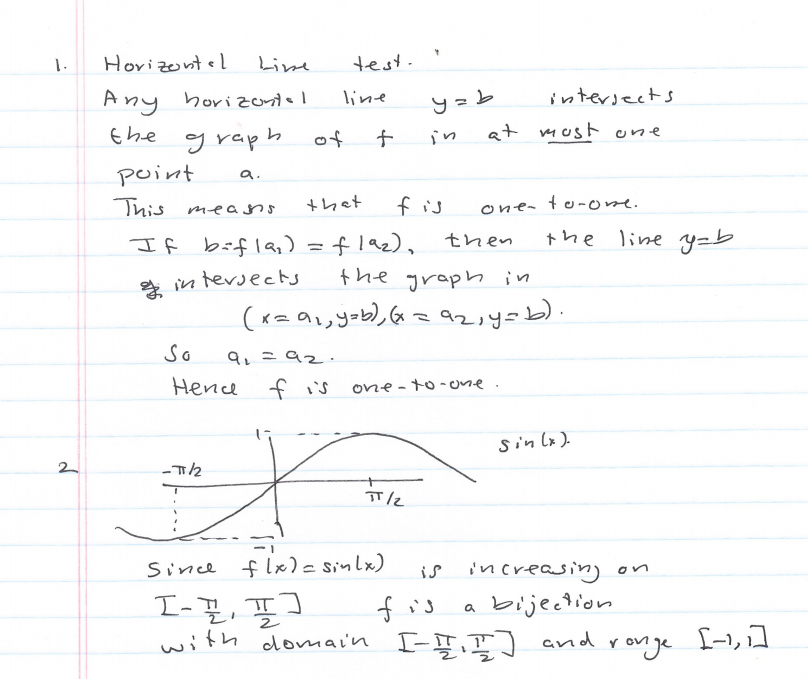 1. Horizontal Line test.
Any horizontal line y=b intersects
the graph of f in at most one
point a.
This means that f is one-to-one.
If b=f(a₁) = f(a₂), then the line y=b
intersects the graph in
(x=a₁,y=b),(x=a₂,y=b).
So a₁ = a₂.
Hence f is one-to-one.
1
sin(x).
2 -π/2
π/2
-1
Since f(x)=sin(x) is increasing on
[-π/2, π/2] f is a bijection
with domain [-π/2, π/2] and range [-1,1]